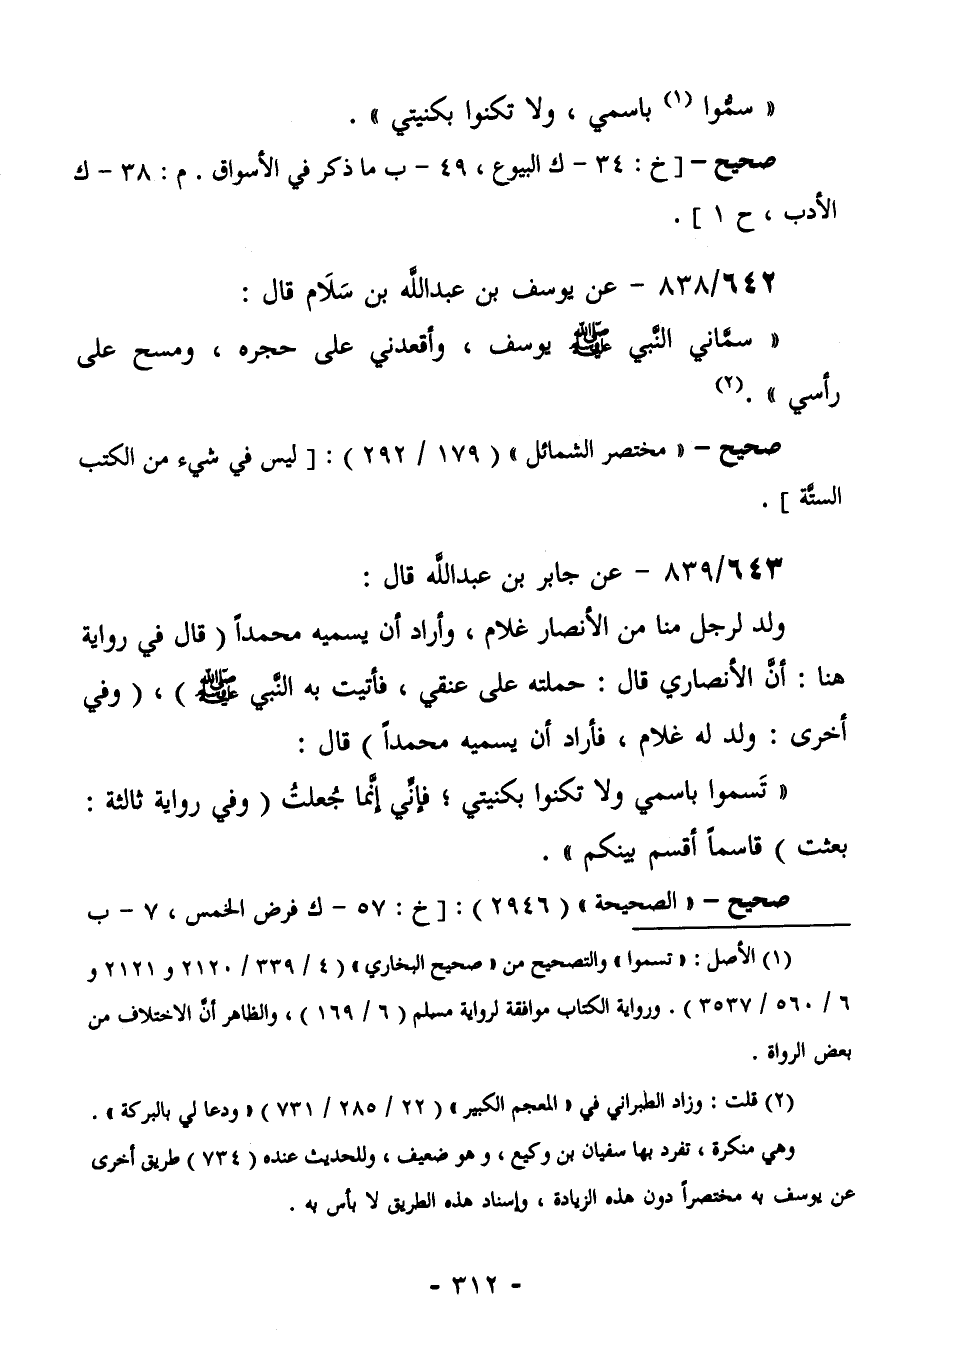 « سمُّوا (١) باسمي ، ولا تكنوا بكنيتي » .
صحيح – [ خ : ٣٤ – ك البيوع ، ٤٩ – ب ما ذكر في الأسواق . م : ٣٨ – ك
الأدب ، ح ١ ] .
٨٣٨/٦٤٢ – عن يوسف بن عبداللَّه بن سَلَام قال :
« سمَّاني النَّبي ﷺ يوسف ، وأقعدني على حجره ، ومسح على
رأسي » .(٢)
صحيح – « مختصر الشمائل » ( ١٧٩ / ٢٩٢ ) : [ ليس في شيء من الكتب
الستَّة ] .
٨٣٩/٦٤٣ – عن جابر بن عبداللَّه قال :
ولد لرجل منا من الأنصار غلام ، وأراد أن يسميه محمداً ( قال في رواية
هنا : أنَّ الأنصاري قال : حملته على عنقي ، فأتيت به النَّبي ﷺ ) ، ( وفي
أخرى : ولد له غلام ، فأراد أن يسميه محمداً ) قال :
« تَسموا باسمي ولا تكنوا بكنيتي ؛ فإنِّي إنَّما جُعلتُ ( وفي رواية ثالثة :
بعثت ) قاسماً أقسم بينكم » .
صحيح – « الصحيحة » ( ٢٩٤٦ ) : [ خ : ٥٧ – ك فرض الخمس ، ٧ – ب
(١) الأصل : « تسموا » والتصحيح من « صحيح البخاري » ( ٤ / ٣٣٩ / ٢١٢٠ و ٢١٢١ و
٦ / ٥٦٠ / ٣٥٣٧ ) . ورواية الكتاب موافقة لرواية مسلم ( ٦ / ١٦٩ ) ، والظاهر أنَّ الاختلاف من
بعض الرواة .
(٢) قلت : وزاد الطبراني في « المعجم الكبير » ( ٢٢ / ٢٨٥ / ٧٣١ ) « ودعا لي بالبركة » .
وهي منكرة ، تفرد بها سفيان بن وكيع ، و هو ضعيف ، وللحديث عنده ( ٧٣٤ ) طريق أخرى
عن يوسف به مختصراً دون هذه الزيادة ، وإسناد هذه الطريق لا بأس به .
- ٣١٢ -